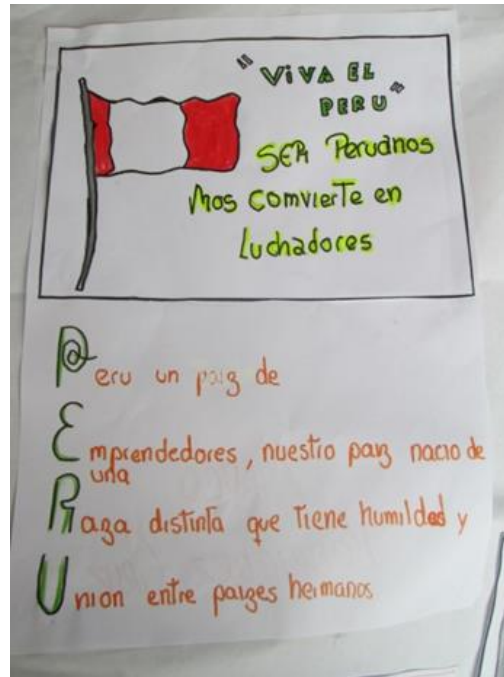 "VIVA EL
PERU"
SER Peruanos
Nos comvierte en
Luchadores
Peru un paiz de
Emprendedores, nuestro paiz nacio de
una
Raza distinta que Tiene humildad y
Union entre paizes hermanos